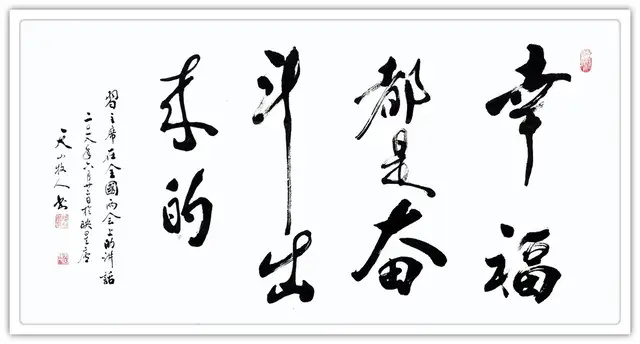 幸福
都是奋
斗出
来的
习主席在全國两会上的讲話
二〇一八年六月廿二日於映星广
天山牧人书